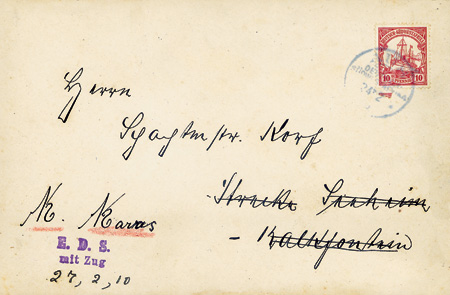 Herrn
Schachtmstr. Korf
Strecke Seeheim
- Kalkfontein
K. Karas
E. D. S.
mit Zug
27, 2, 10
10 10